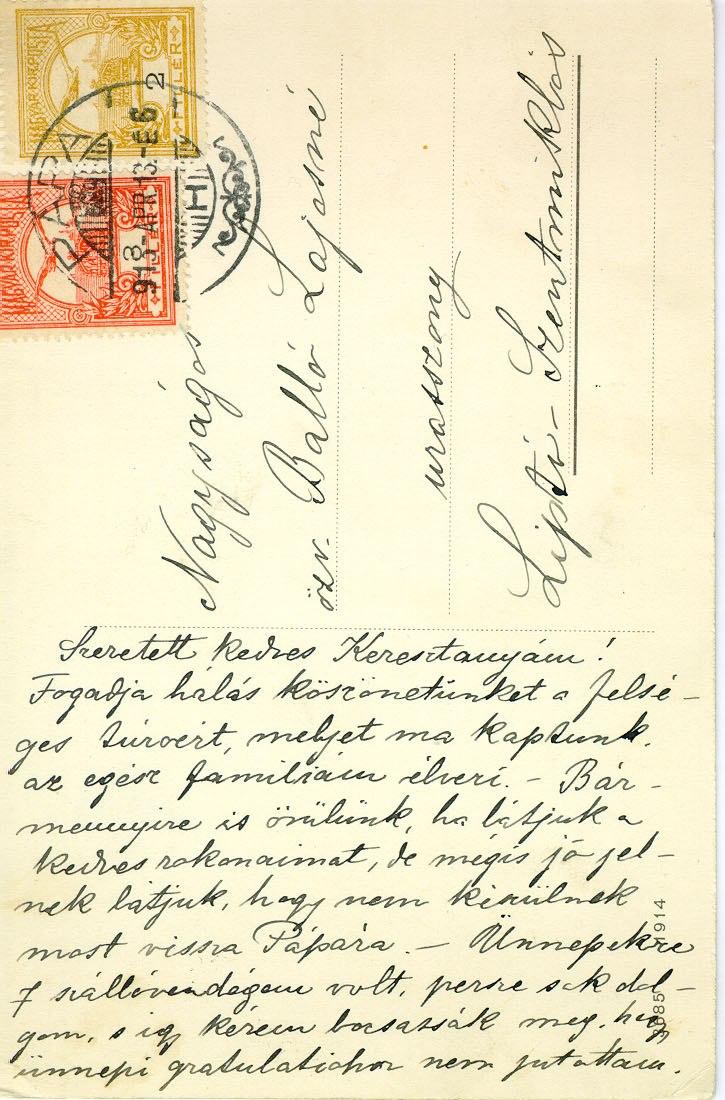 MAGYAR KIR. POSTA
FILLÉR
MAGYAR KIR. POSTA
FILLÉR
PÁPA
918 APR 13 - E6
2
H
Nagyságos
özv. Balló Lajosné
uraszony
Liptó-Szentmiklós
Szeretett kedves Keresztanyám!
Fogadja hálás köszönetünket a felsé-
ges túróért, melyet ma kaptunk.
az egész familiám élvezi. - Bár-
mennyire is örülünk, ha látjuk a
kedves rokonaimat, de mégis jó jel-
nek látjuk, hogy nem készülnek
most vissza Pápára. - Ünnepekre
7 szállóvendégem volt, persze sok dol-
gom, s így kérem bocsássák meg, hogy
ünnepi gratulatióhoz nem jutottam.
914